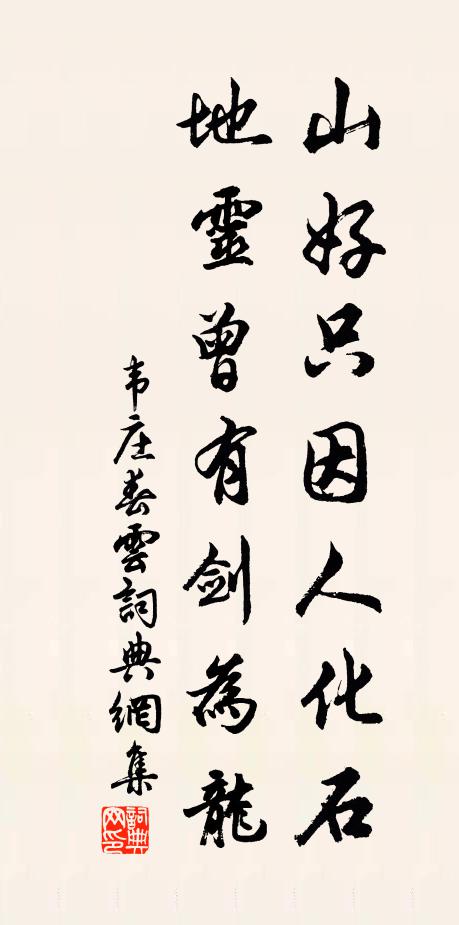 山好只因人化石
地靈曾有剑為龍
韦庄春雲詞典網集
詞典
网印